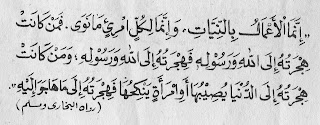 "إِنَّمَا الْأَعْمَالُ بِالنِّيَّاتِ، وَإِنَّمَا لِكُلِّ امْرِئٍ مَا نَوَى. فَمَنْ كَانَتْ
هِجْرَتُهُ إِلَى اللهِ وَرَسُولِهِ فَهِجْرَتُهُ إِلَى اللهِ وَرَسُولِهِ، وَمَنْ كَانَتْ
هِجْرَتُهُ إِلَى الدُّنْيَا يُصِيبُهَا أَوِ امْرَأَةٍ يَنْكِحُهَا فَهِجْرَتُهُ إِلَى مَا هَاجَرَ إِلَيْهِ".
(رواه البخاري ومسلم)